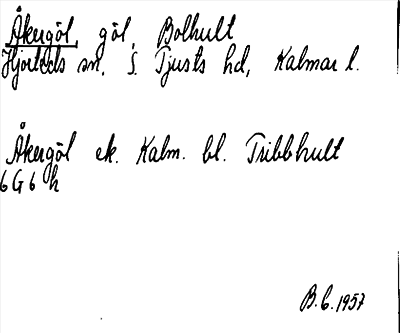 Åkergöl, göl, Bolhult
Hjorteds sn, S. Tjusts hd, Kalmar l.
Åkergöl ek. Kalm. bl. Tribbhult
6G6h
B.C. 1957